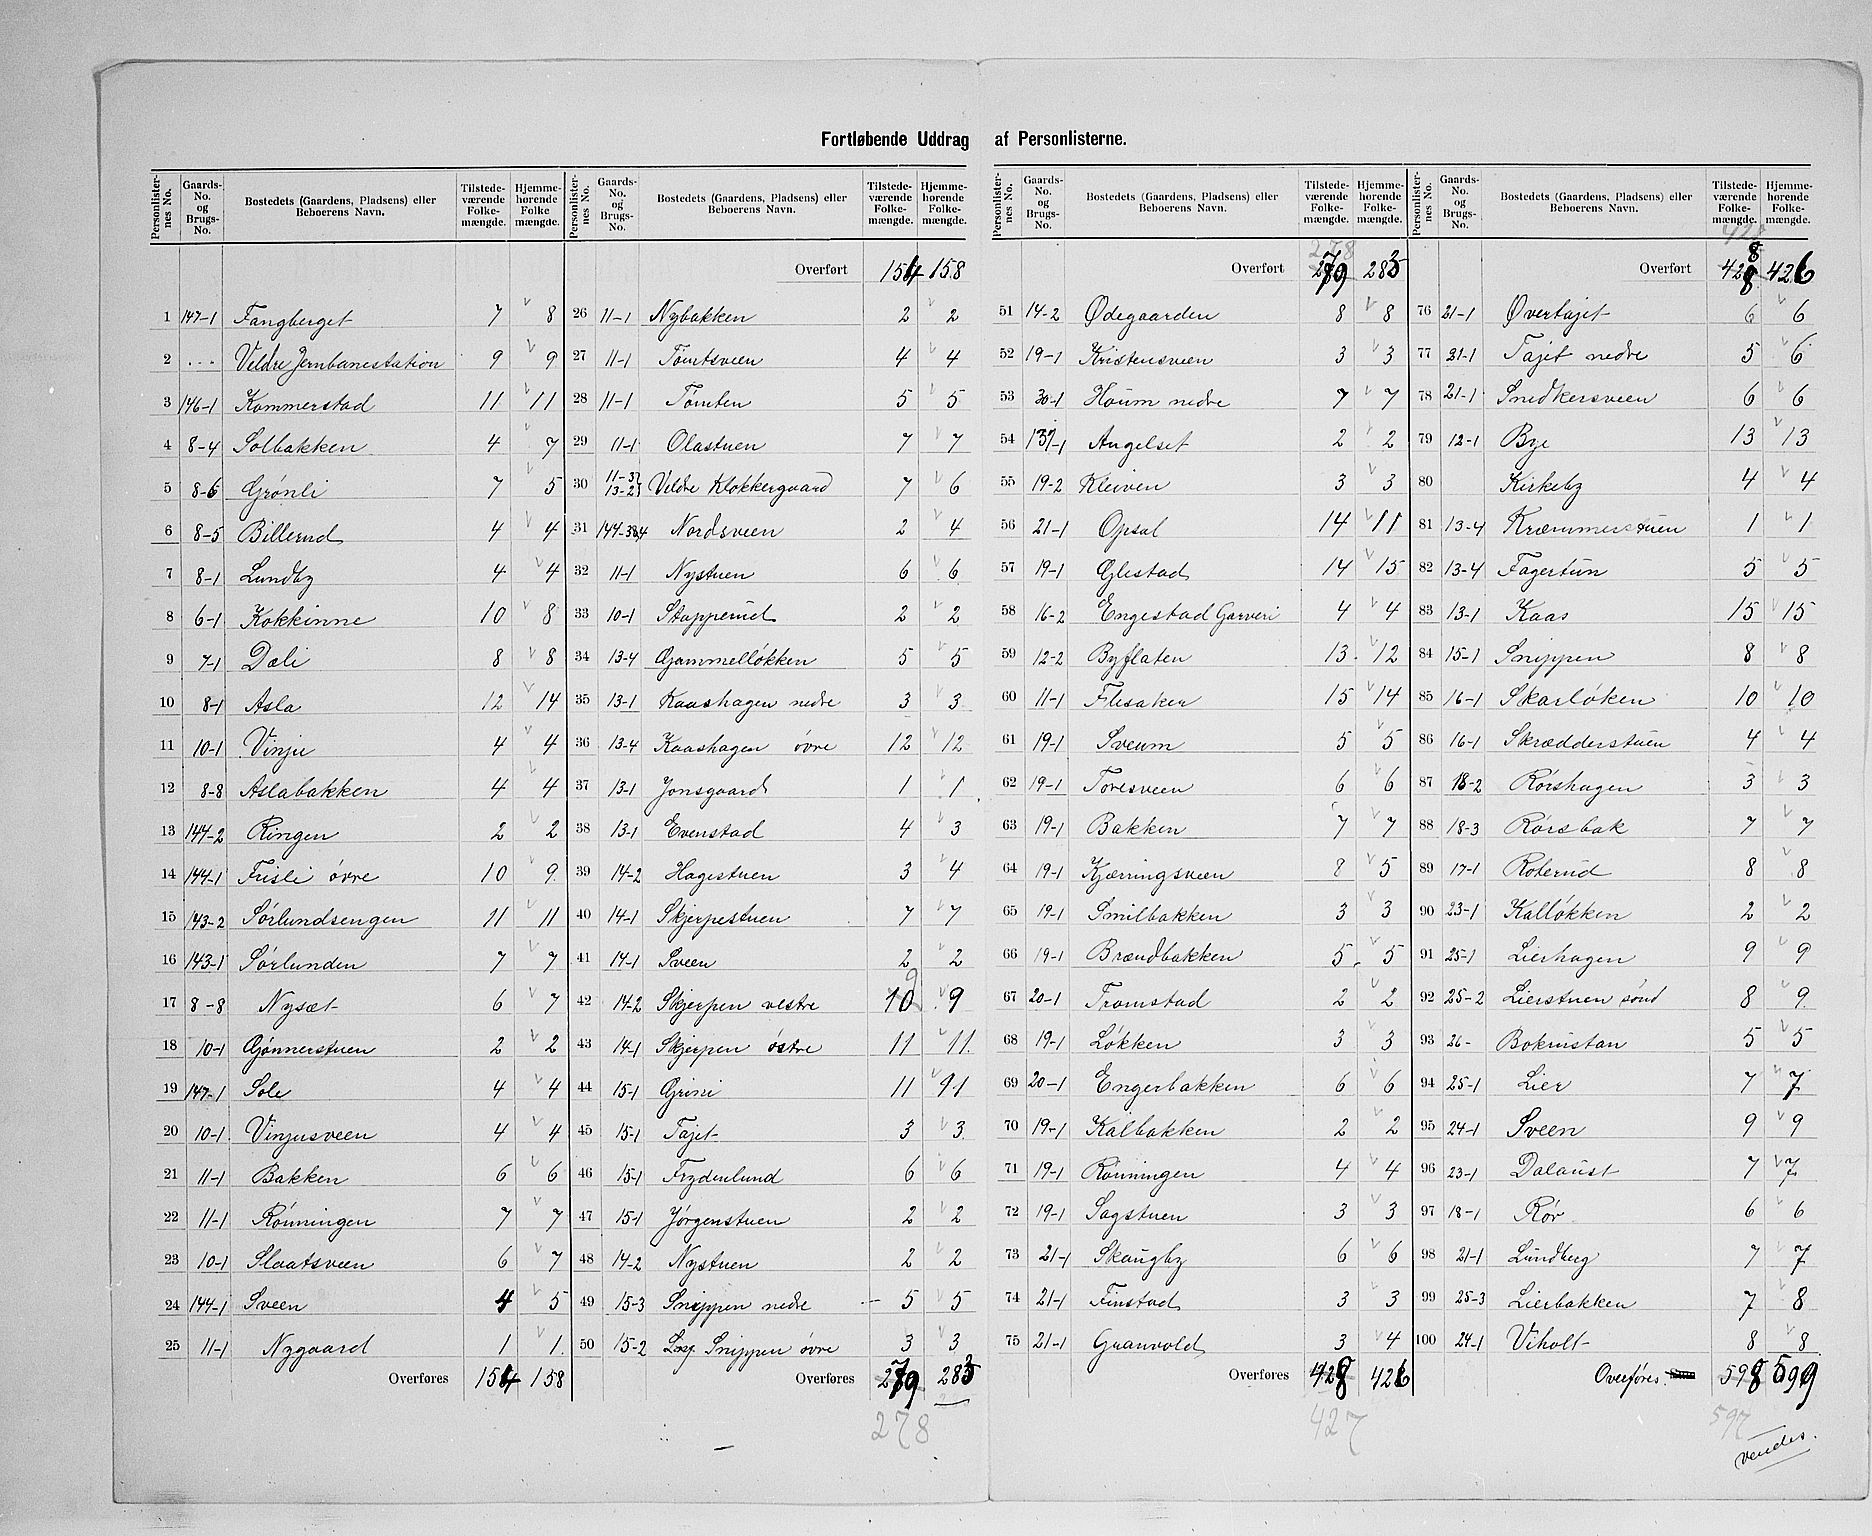 Fortløbende Uddrag af Personlisterne.
Personlister-nes No. | Gaards-No. og Brugs-No. | Bostedets (Gaardens, Pladsens) eller Beboerens Navn. | Tilstede-værende Folke-mængde. | Hjemme-hørende Folke mængde.
1 147-1 Fangberget 7 8
2 . . . Veldre Jernbanestation 9 9
3 146-1 Kommerstad 11 11
4 8-4 Solbakken 4 7
5 8-6 Grønli 7 5
6 8-5 Billerud 4 4
7 8-1 Lundby 4 4
8 6-1 Kokkinne 10 8
9 7-1 Dæli 8 8
10 8-1 Asla 12 14
11 10-1 Vinju 4 4
12 8-8 Aslabakken 4 4
13 144-2 Ringen 2 2
14 144-1 Frisli øvre 10 9
15 143-2 Sørlundsengen 11 11
16 143-1 Sørlunden 7 7
17 8-8 Nysæt 6 7
18 10-1 Gjønnerstuen 2 2
19 147-1 Sole 4 4
20 10-1 Vinjusveen 4 4
21 11-1 Bakken 6 6
22 11-1 Rønningen 7 7
23 10-1 Slaatsveen 6 7
24 144-1 Sveen 4 5
25 11-1 Nygaard 1 1
Overføres 154 158
Personlister-nes No. | Gaards-No. og Brugs-No. | Bostedets (Gaardens, Pladsens) eller Beboerens Navn. | Tilstede-værende Folke-mængde. | Hjemme-hørende Folke-mængde.
Overført 154 158
26 11-1 Nybakken 2 2
27 11-1 Tomtsveen 4 4
28 11-1 Tomten 5 5
29 11-1 Olastuen 7 7
30 11-3 13-2 Veldre Klokkergaard 7 6
31 Nordsveen 2 4
32 11-1 Nystuen 6 6
33 10-1 Stopperud 2 2
34 13-4 Gjammelløkken 5 5
35 13-1 Kaashagen nedre 3 3
36 13-4 Kaashagen øvre 12 12
37 13-1 Jonsgaard 1 1
38 13-1 Evenstad 4 3
39 14-2 Hagestuen 3 4
40 14-1 Skjerpestuen 7 7
41 14-1 Sveen 2 2
42 14-2 Skjerpen vestre 10 9 9
43 14-1 Skjerpen østre 11 11
44 15-1 Grini 11 91
45 15-1 Tajet 3 3
46 15-1 Frydenlund 6 6
47 15-1 Jørgenstuen 2 2
48 14-2 Nystuen 2 2
49 15-3 Snippen nedre 5 5
50 15-2 Snippen øvre 3 3
Overføres 279 283
278
Personlister-nes No. | Gaards-No. og Brugs-No. | Bostedets (Gaardens, Pladsens) eller Beboerens Navn. | Tilstede-værende Folke-mængde. | Hjemme-hørende Folke-mængde.
278
Overført 279 283
51 14-2 Ødegaarden 8 8
52 19-1 Kristensveen 3 3
53 30-1 Houm nedre 7 7
54 137-1 Angelset 2 2
55 19-2 Kleiven 3 3
56 21-1 Opsal 14 11
57 19-1 Glestad 14 15
58 16-2 Engestad Garveri 4 4
59 12-2 Byflaten 13 12
60 11-1 Flisaker 15 14
61 19-1 Sveum 5 5
62 19-1 Toresveen 6 6
63 19-1 Bakken 7 7
64 19-1 Kjærringsveen 8 5
65 19-1 Smilbakken 3 3
66 19-1 Brændbakken 5 5
67 20-1 Tromstad 2 2
68 19-1 Løkken 3 3
69 20-1 Engerbakken 6 6
70 19-1 Kalbakken 2 2
71 19-1 Rønningen 4 4
72 19-1 Sagstuen 3 3
73 21-1 Skaugby 6 6
74 21-1 Finstad 3 3
75 21-1 Granvold 3 4
Overføres 428 426
427
Personlister-nes No. | Gaards-No. og Brugs-No. | Bostedets (Gaardens, Pladsens) eller Beboerens Navn. | Tilstede-værende Folke-mængde. | Hjemme-hørende Folke-mængde.
428
Overført 428 426
76 21-1 Øvertajet 6 6
77 21-1 Tajet nedre 5 6
78 21-1 Snedkersveen 6 6
79 12-1 Bye 13 13
80 Kirkeby 4 4
81 13-4 Kræmmerstuen 1 1
82 13-4 Fagertun 5 5
83 13-1 Kaas 15 15
84 15-1 Snippen 8 8
85 16-1 Skarløken 10 10
86 16-1 Skrædderstuen 4 4
87 18-2 Rørshagen 3 3
88 18-3 Rørsbak 7 7
89 17-1 Roterud 8 8
90 23-1 Kalløkken 2 2
91 25-1 Lierhagen 9 9
92 25-2 Lierstuen sønd 8 9
93 26- Bokvistan 5 5
94 25-1 Lier 7 7
95 24-1 Sveen 9 9
96 23-1 Dalaust 7 7
97 18-1 Rør 6 6
98 21-1 Lundberg 7 7
99 25-3 Lierbakken 7 8
100 24-1 Viholt 8 8
Overføres 598 599
597
vendes.